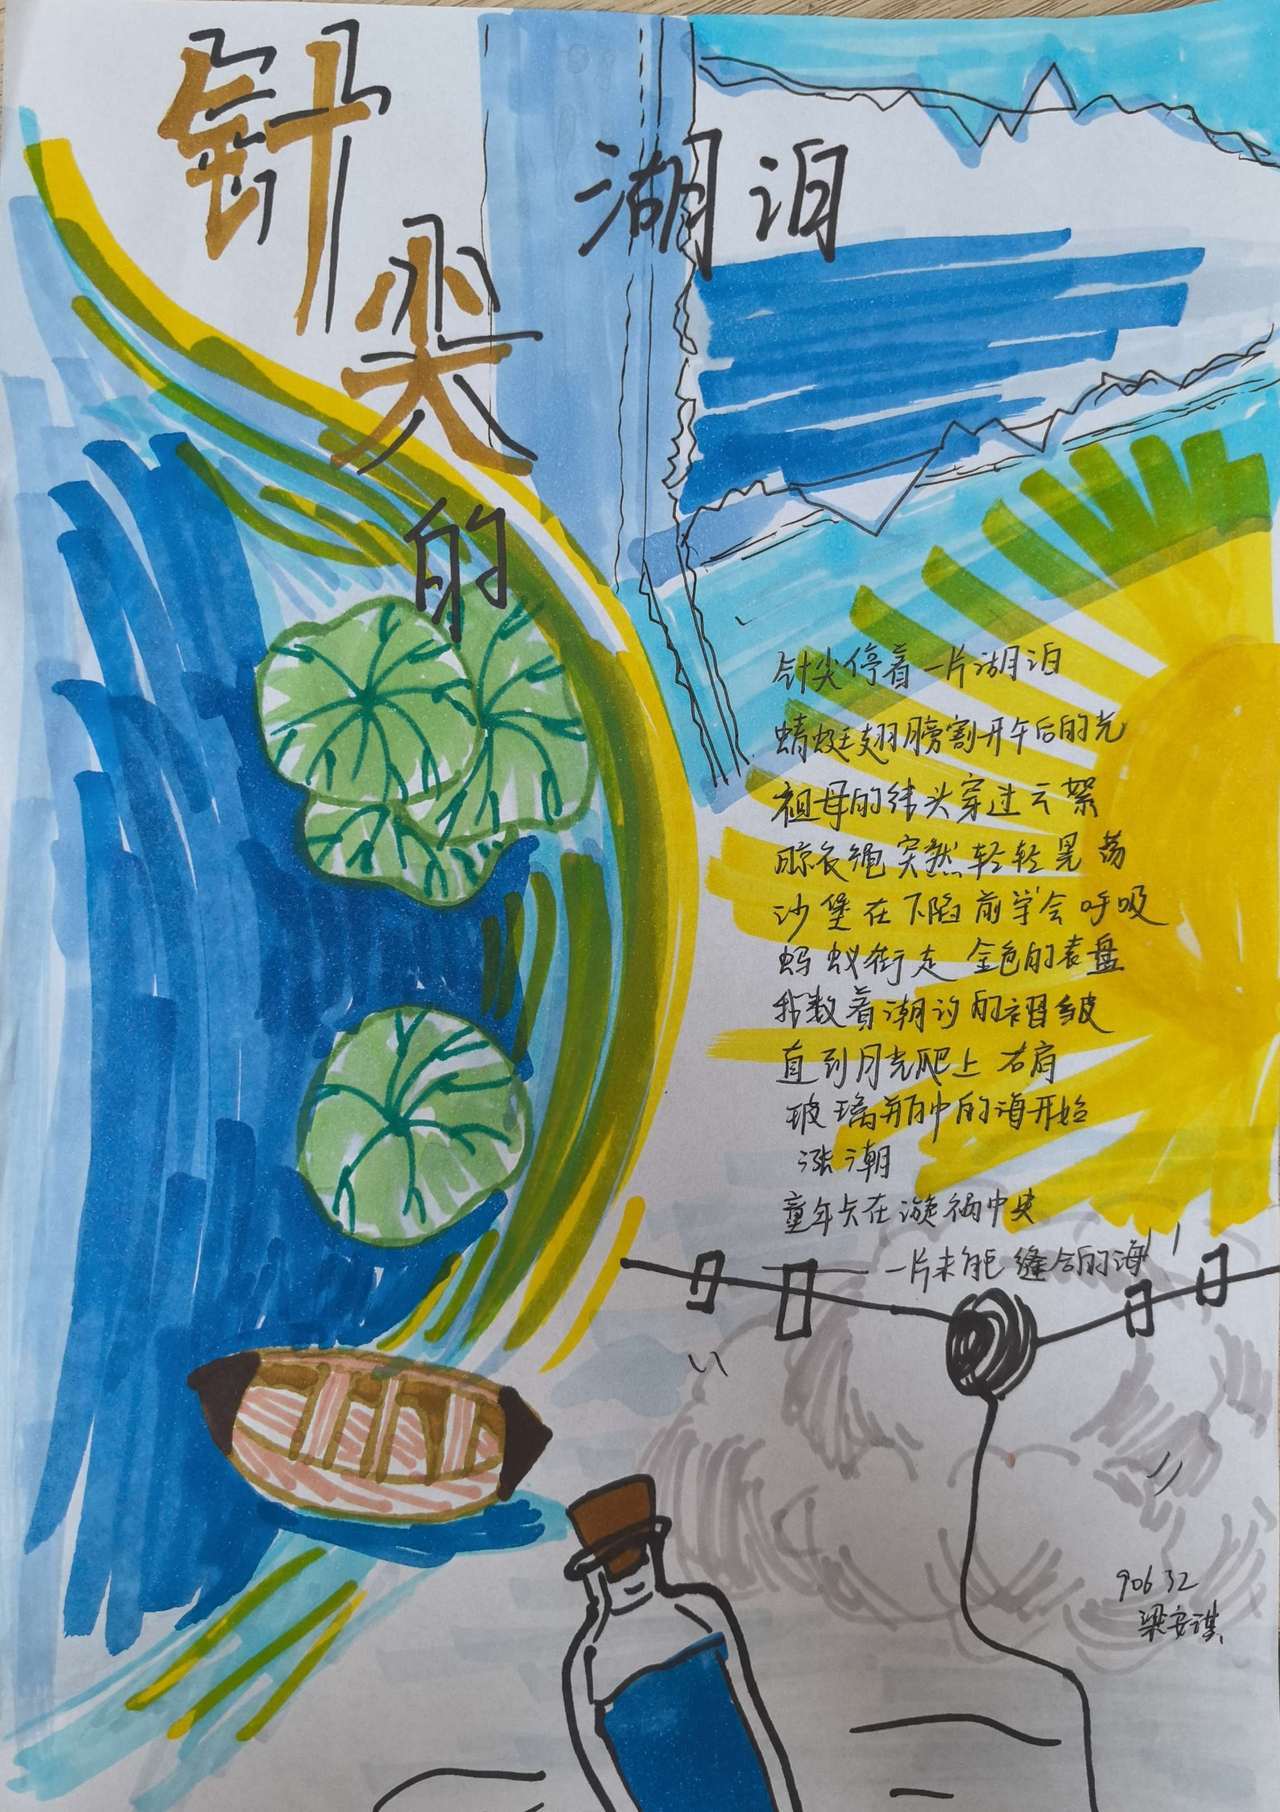 针尖的
湖泊
针尖停着一片湖泊
蜻蜓翅膀割开午后的光
祖母的线头穿过云絮
晾衣绳突然轻轻晃荡
沙堡在下陷前学会呼吸
蚂蚁衔走金色的表盘
我数着潮汐的褶皱
直到月光爬上右肩
玻璃瓶中的海开始
涨潮
童年卡在漩涡中央
——一片未能缝合的海
90632
梁安淇